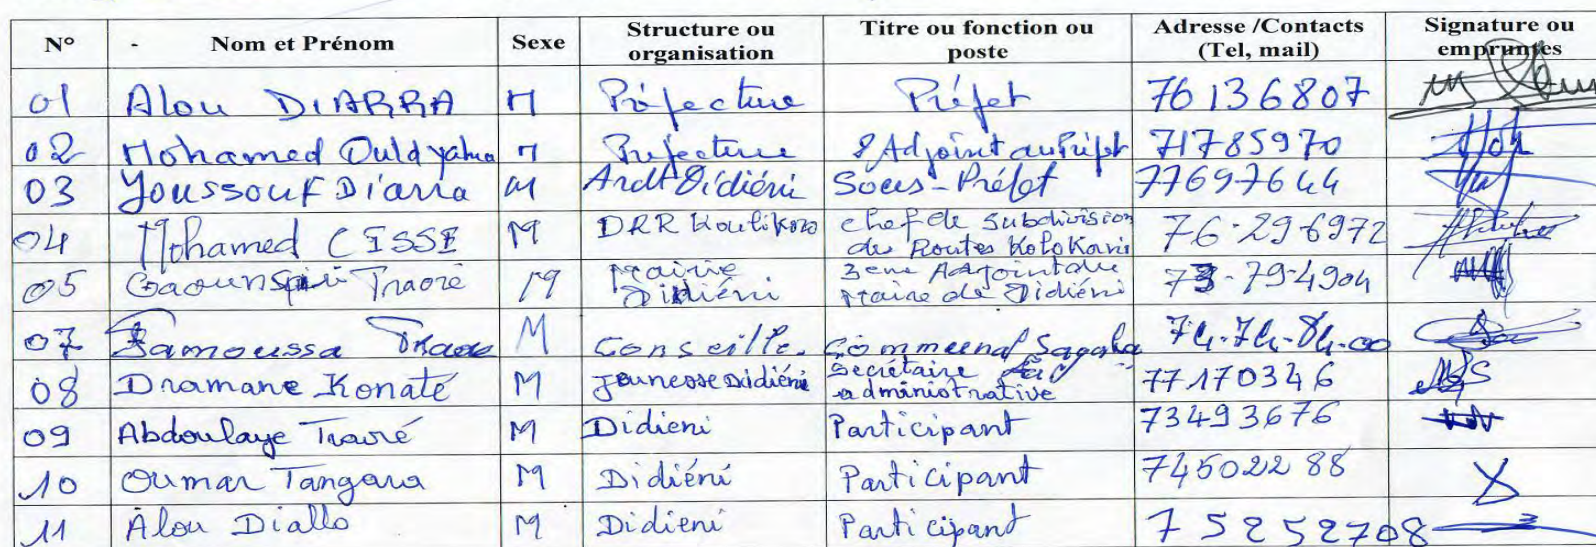 N° - Nom et Prénom Sexe Structure ou organisation Titre ou fonction ou poste Adresse /Contacts (Tel, mail) Signature ou empruntes
01 Alou DIARRA M Préfecture Préfet 76136807
02 Mohamed Ould yaha M Préfecture 2 Adjoint au Préfet 71785970
03 Youssouf Diarra M Ardt Didiéni Sous-Préfet 77697644
04 Mohamed CISSE M DRR Koulikoro chef de Subdivision des Routes Kolokani 76-296972
05 Traoré M Mairie Didiéni 3eme Adjoint du Maire de Didiéni 73-79-4904
07 Famoussa Traore M Conseille. Communal Sagala 74-74-84-00
08 Dramane Konaté M jeunesse Didiéni Secrétaire administrative 77170346
09 Abdoulaye Traoré M Didieni Participant 73493676
10 Oumar Tangara M Didiéni Participant 74502288
11 Alou Diallo M Didieni Participant 75252708